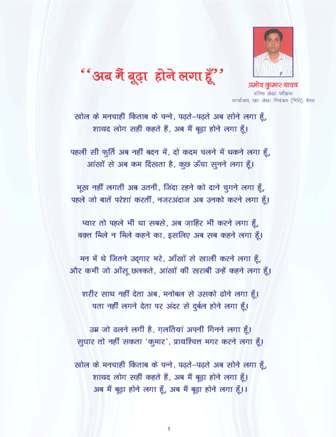 “अब मैं बूढ़ा होने लगा हूँ”
प्रमोद कुमार यादव
वरिष्ठ लेखा परीक्षक
कार्यालय, रक्षा लेखा नियंत्रक
खोल के मनचाही किताब के पन्ने, पढ़ते-पढ़ते अब सोने लगा हूँ,
शायद लोग सही कहते हैं, अब मैं बूढ़ा होने लगा हूँ।
पहली सी फुर्ति अब नहीं बदन में, दो कदम चलने में थकने लगा हूँ,
आंखों से अब कम दिखता है, कुछ ऊँचा सुनने लगा हूँ।
भूख नहीं लगती अब उतनी, जिंदा रहने को दाने चुगने लगा हूँ,
पहले जो बातें परेशां करतीं, नजरअंदाज अब उनको करने लगा हूँ।
प्यार तो पहले भी था सबसे, अब जाहिर भी करने लगा हूँ,
वक़्त मिले न मिले कहने का, इसलिए अब सब कहने लगा हूँ।
मन में थे जितने उद्गार भरे, आँखों से खाली करने लगा हूँ,
और कभी जो आँसू छलकते, आंखों की खराबी उन्हें कहने लगा हूँ।
शरीर साथ नहीं देता अब, मनोबल से उसको ढोने लगा हूँ।
पता नहीं लगने देता पर अंदर से दुर्बल होने लगा हूँ।
उम्र जो ढलने लगी है, गलतियां अपनी गिनने लगा हूँ।
सुधार तो नहीं सकता 'कुमार', प्रायश्चित्त मगर करने लगा हूँ।
खोल के मनचाही किताब के पन्ने, पढ़ते-पढ़ते अब सोने लगा हूँ,
शायद लोग सही कहते हैं, अब मैं बूढ़ा होने लगा हूँ।
अब मैं बूढ़ा होने लगा हूँ, अब मैं बूढ़ा होने लगा हूँ।।